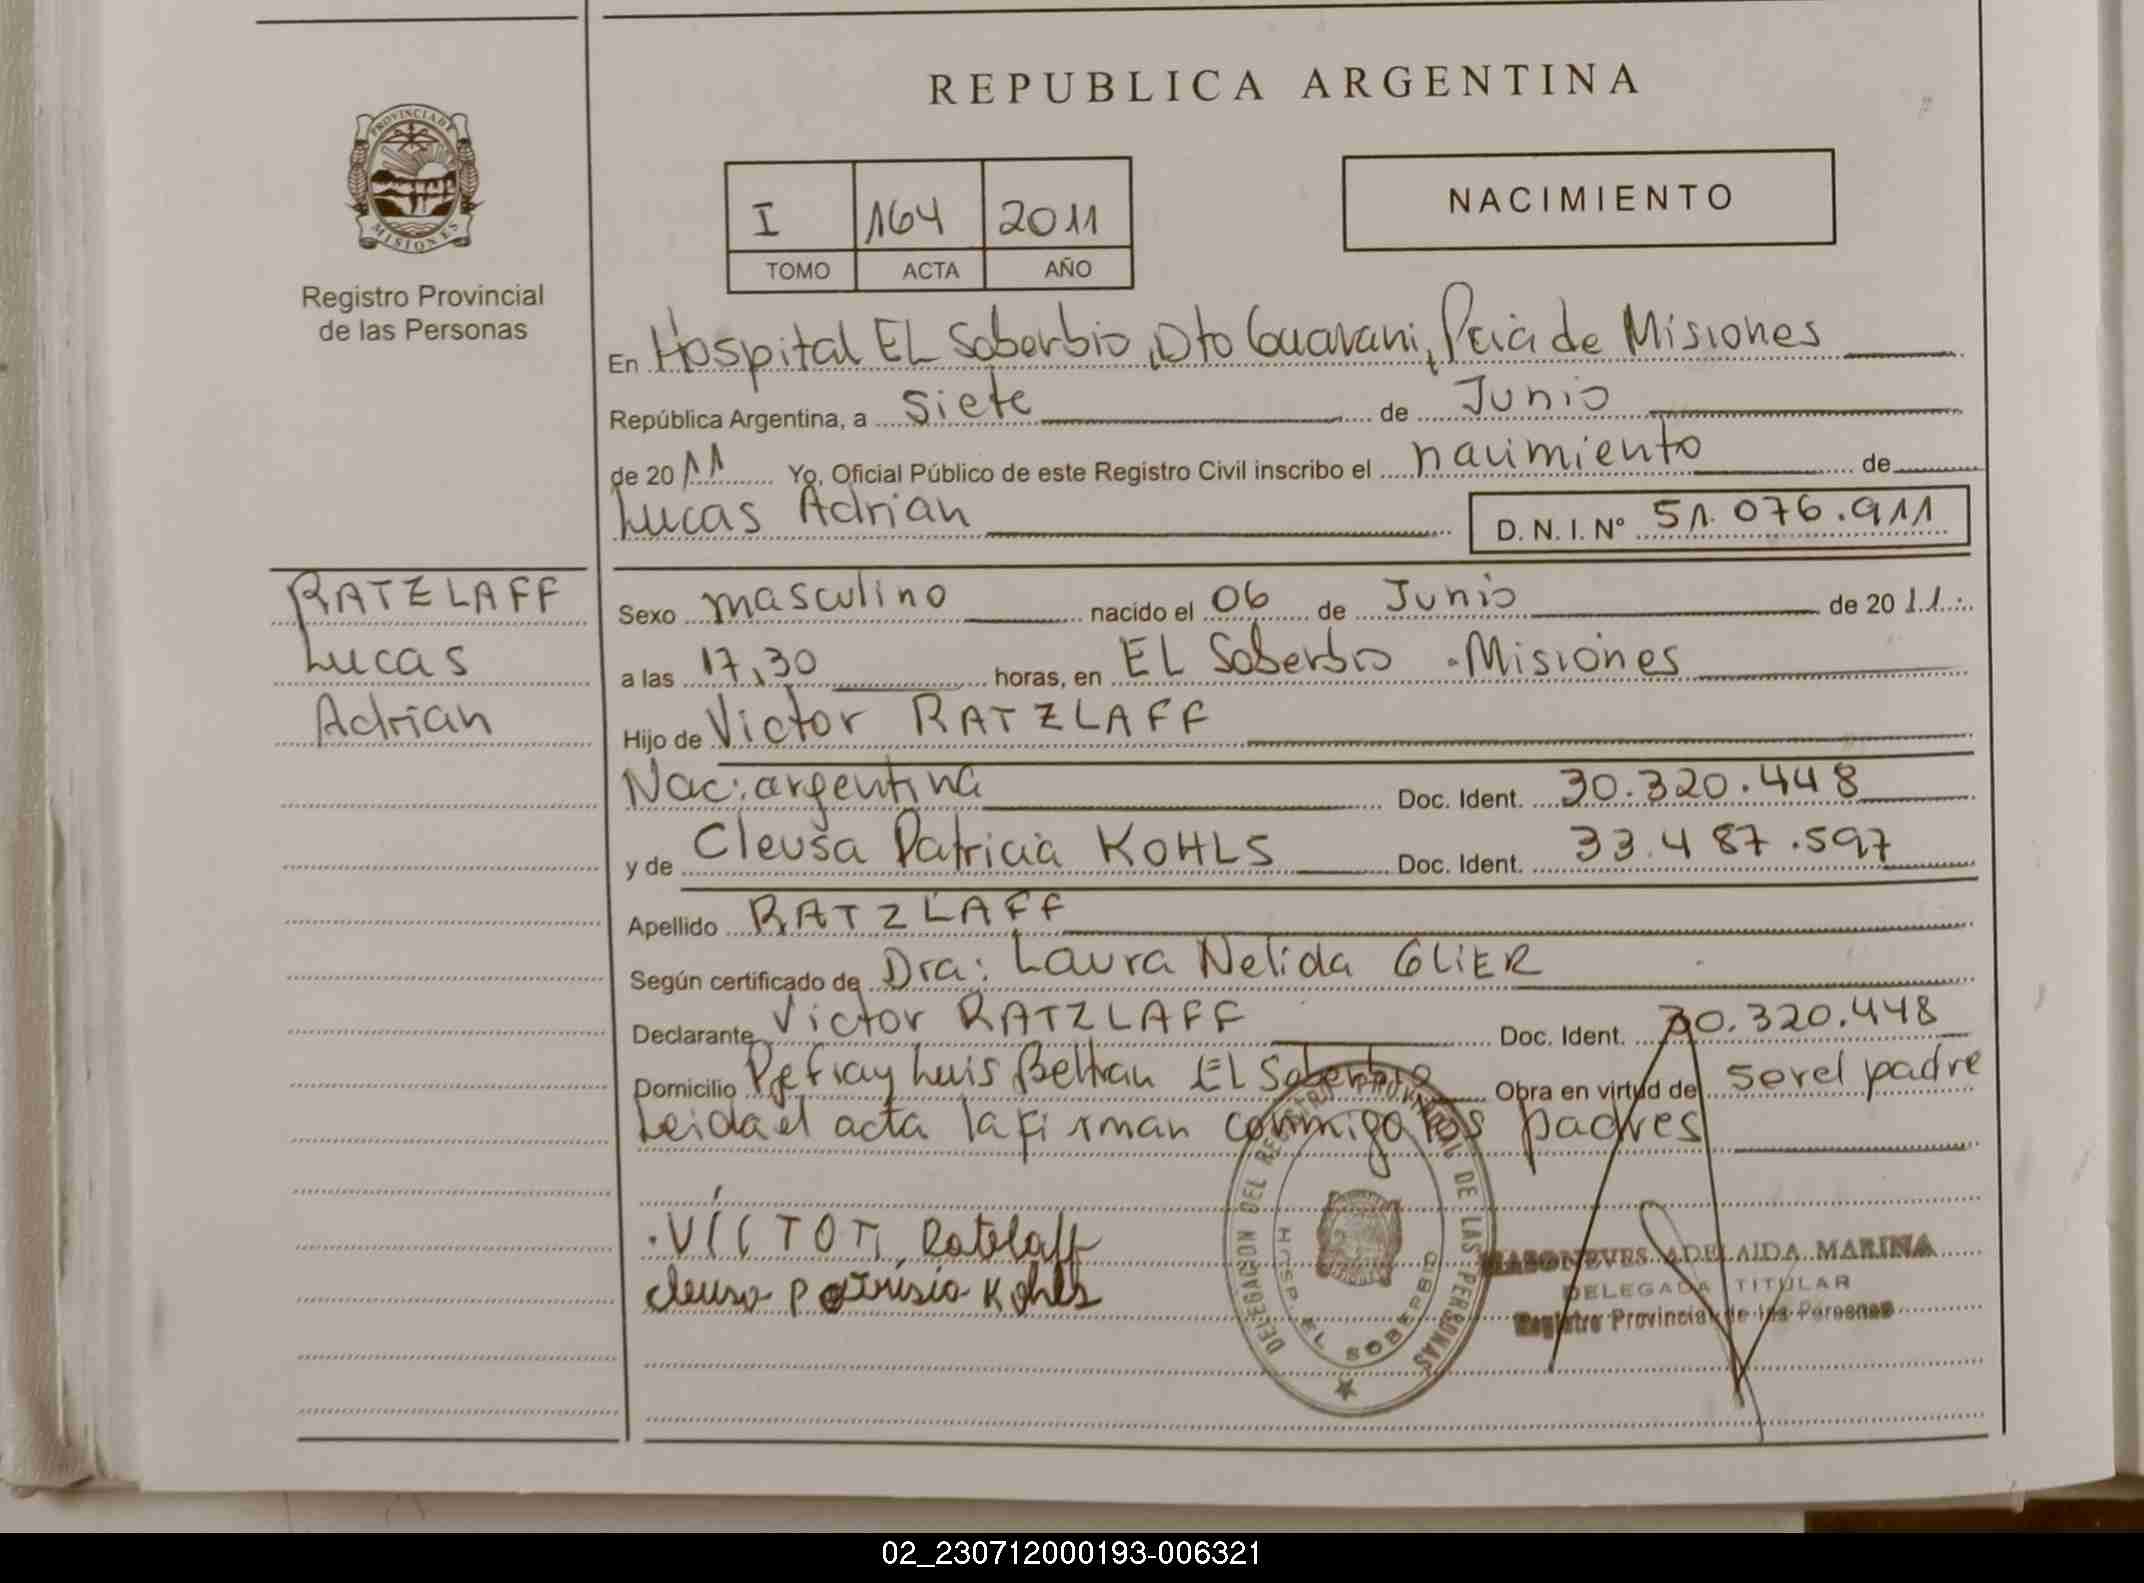 REPUBLICA ARGENTINA
PROVINCIA DE
MISIONES
Registro Provincial
de las Personas
I 164 2011
TOMO ACTA AÑO
NACIMIENTO
En Hospital EL Soberbio, Dto Guarani, Pcia de Misiones
República Argentina, a siete de Junio
de 2011 Yo, Oficial Público de este Registro Civil inscribo el nacimiento de
Lucas Adrian D. N. I. Nº 51.076.911
RATZLAFF
Lucas
Adrian
Sexo masculino nacido el 06 de Junio de 2011
a las 17,30 horas, en EL Soberbio . Misiones
Hijo de Victor RATZLAFF
Nac: argentina Doc. Ident. 30.320.448
y de Cleusa Patricia KOHLS Doc. Ident. 33.487.597
Apellido RATZLAFF
Según certificado de Dra: Laura Nelida GLIER
Declarante Victor RATZLAFF Doc. Ident. 30.320.448
Domicilio Pje fray Luis Beltran EL Soberbio Obra en virtud de ser el padre
Leida el acta la firman conmigo los padres
VICTOR Ratzlaff
cleusa patrisia Kohls
DELEGACION DEL REGISTRO PROVINCIAL DE LAS PERSONAS
HOSP. EL SOBERBIO
ADELAIDA MARINA
DELEGADA TITULAR
Registro Provincial de las Personas
02_230712000193-006321